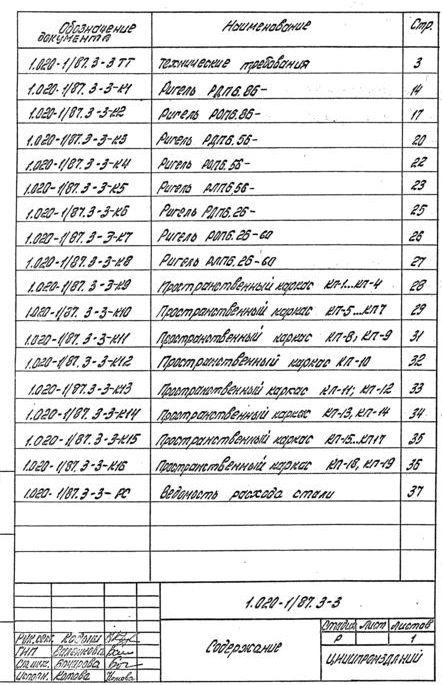 Обозначение документа Наименование Стр.
1.020-1/87.3-3 ТТ Технические требования 3
1.020-1/87.3-3-К1 Ригель РДП6.86- 14
1.020-1/87.3-3-К2 Ригель РОП6.86- 17
1.020-1/87.3-3-К3 Ригель РДП6.56- 20
1.020-1/87.3-3-К4 Ригель РОП6.56- 22
1.020-1/87.3-3-К5 Ригель РЛП6.56- 23
1.020-1/87.3-3-К6 Ригель РДП6.26- 25
1.020-1/87.3-3-К7 Ригель РОП6.26-60 26
1.020-1/87.3-3-К8 Ригель РЛП6.26-60 27
1.020-1/87.3-3-К9 Пространственный каркас КП-1...КП-4 28
1.020-1/87.3-3-К10 Пространственный каркас КП-5...КП7 29
1.020-1/87.3-3-К11 Пространственный каркас КП-8, КП-9 31
1.020-1/87.3-3-К12 Пространственный каркас КП-10 32
1.020-1/87.3-3-К13 Пространственный каркас КП-11; КП-12 33
1.020-1/87.3-3-К14 Пространственный каркас КП-13, КП-14 34
1.020-1/87.3-3-К15 Пространственный каркас КП-15...КП17 35
1.020-1/87.3-3-К16 Пространственный каркас КП-18, КП-19 36
1.020-1/87.3-3-РС Ведомость расхода стали 37
1.020-1/87.3-3
Содержание
Стадия Лист Листов
Р 1
ЦНИИПРОМЗДАНИЙ
Рук.сек.
ГИП
Ст.инж. Бочарова
Исполн. Котова